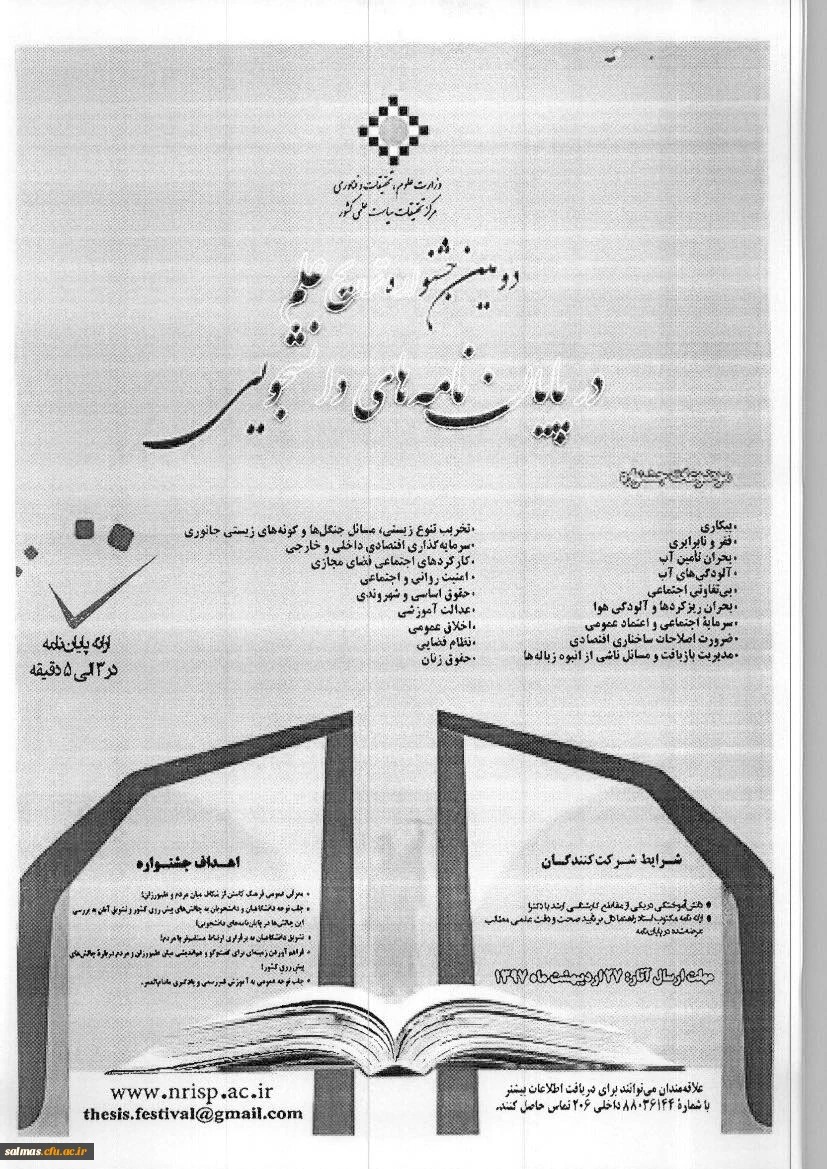 وزارت علوم، تحقیقات و فناوری
مرکز تحقیقات سیاست علمی کشور
دومین جشنواره ترویج علم
در پایان نامه‌های دانشجویی
موضوعات جشنواره
•بیکاری
•فقر و نابرابری
•بحران تأمین آب
•آلودگی‌های آب
•بی‌تفاوتی اجتماعی
•بحران ریزگردها و آلودگی هوا
•سرمایهٔ اجتماعی و اعتماد عمومی
•ضرورت اصلاحات ساختاری اقتصادی
•مدیریت بازیافت و مسائل ناشی از انبوه زباله‌ها
•تخریب تنوع زیستی، مسائل جنگل‌ها و گونه‌های زیستی جانوری
•سرمایه‌گذاری اقتصادی داخلی و خارجی
•کارکردهای اجتماعی فضای مجازی
•امنیت روانی و اجتماعی
•حقوق اساسی و شهروندی
•عدالت آموزشی
•اخلاق عمومی
•نظام قضایی
•حقوق زنان
ارائه پایان‌نامه
در ۳ الی ۵ دقیقه
شرایط شرکت‌کنندگان
• دانش‌آموختگی در یکی از مقاطع کارشناسی ارشد یا دکترا
• ارائه نامه مکتوب استاد راهنما دال بر تأیید صحت و دقت علمی مطالب
عرضه شده در پایان‌نامه
مهلت ارسال آثار: ۲۷ اردیبهشت ماه ۱۳۹۷
اهداف جشنواره
• معرفی عمومی فرهنگ کاستن از شکاف میان مردم و علم‌ورزان؛
• جلب توجه دانشگاهیان و دانشجویان به چالش‌های پیش روی کشور و تشویق آنان به بررسی
این چالش‌ها در پایان‌نامه‌های دانشجویی؛
• تشویق دانشگاهیان به برقراری ارتباط مستقیم‌تر با مردم؛
• فراهم آوردن زمینه‌ای برای گفت‌وگو و هم‌اندیشی میان علم‌ورزان و مردم دربارهٔ چالش‌های
پیش روی کشور؛
• جلب توجه عمومی به آموزش غیررسمی و یادگیری مادام‌العمر.
علاقه‌مندان می‌توانند برای دریافت اطلاعات بیشتر
با شمارهٔ ۸۸۰۳۶۱۴۴ داخلی ۲۰۶ تماس حاصل کنند.
www.nrisp.ac.ir
thesis.festival@gmail.com
salmas.cfu.ac.ir